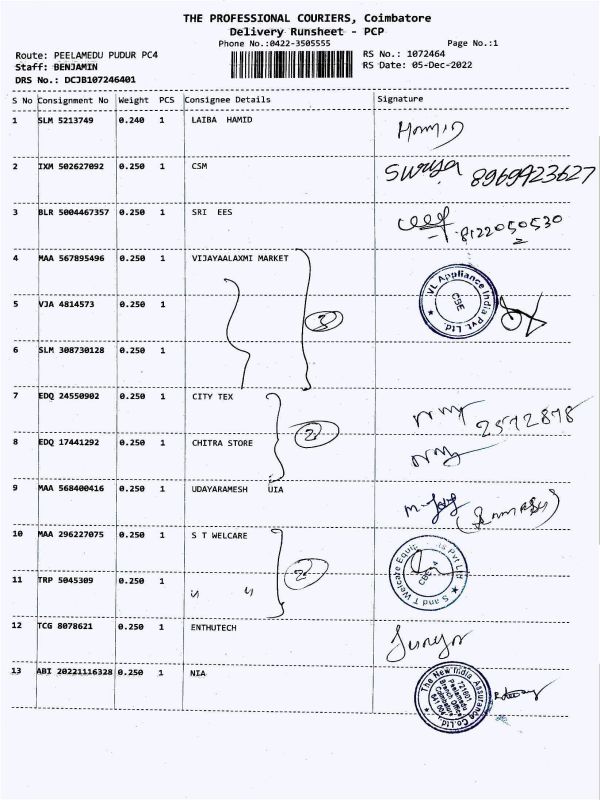 THE PROFESSIONAL COURIERS, Coimbatore
Delivery Runsheet - PCP
Phone No.:0422-3505555 Page No.:1
Route: PEELAMEDU PUDUR PC4 RS No.: 1072464
Staff: BENJAMIN RS Date: 05-Dec-2022
DRS No.: DCJB107246401
S No Consignment No Weight PCS Consignee Details Signature
1 SLM 5213749 0.240 1 LAIBA HAMID
Hamid
2 IXM 502627092 0.250 1 CSM
Surya 8969923627
3 BLR 5004467357 0.250 1 SRI EES
8122050530
4 MAA 567895496 0.250 1 VIJAYAALAXMI MARKET
VL Appliance India Pvt. Ltd. CBE
5 VJA 4814573 0.250 1
3
6 SLM 308730128 0.250 1
7 EDQ 24550902 0.250 1 CITY TEX
2572878
8 EDQ 17441292 0.250 1 CHITRA STORE
2
9 MAA 568400416 0.250 1 UDAYARAMESH UIA
(Ramesh)
10 MAA 296227075 0.250 1 S T WELCARE
S and T Welcare Equip Pvt Ltd
2
11 TRP 5045309 0.250 1 " "
12 TCG 8078621 0.250 1 ENTHUTECH
13 ABI 20221116328 0.250 1 NIA
The New India Assurance Co. Ltd.
721601
Peelamedu
Branch Office
Coimbatore
641 004